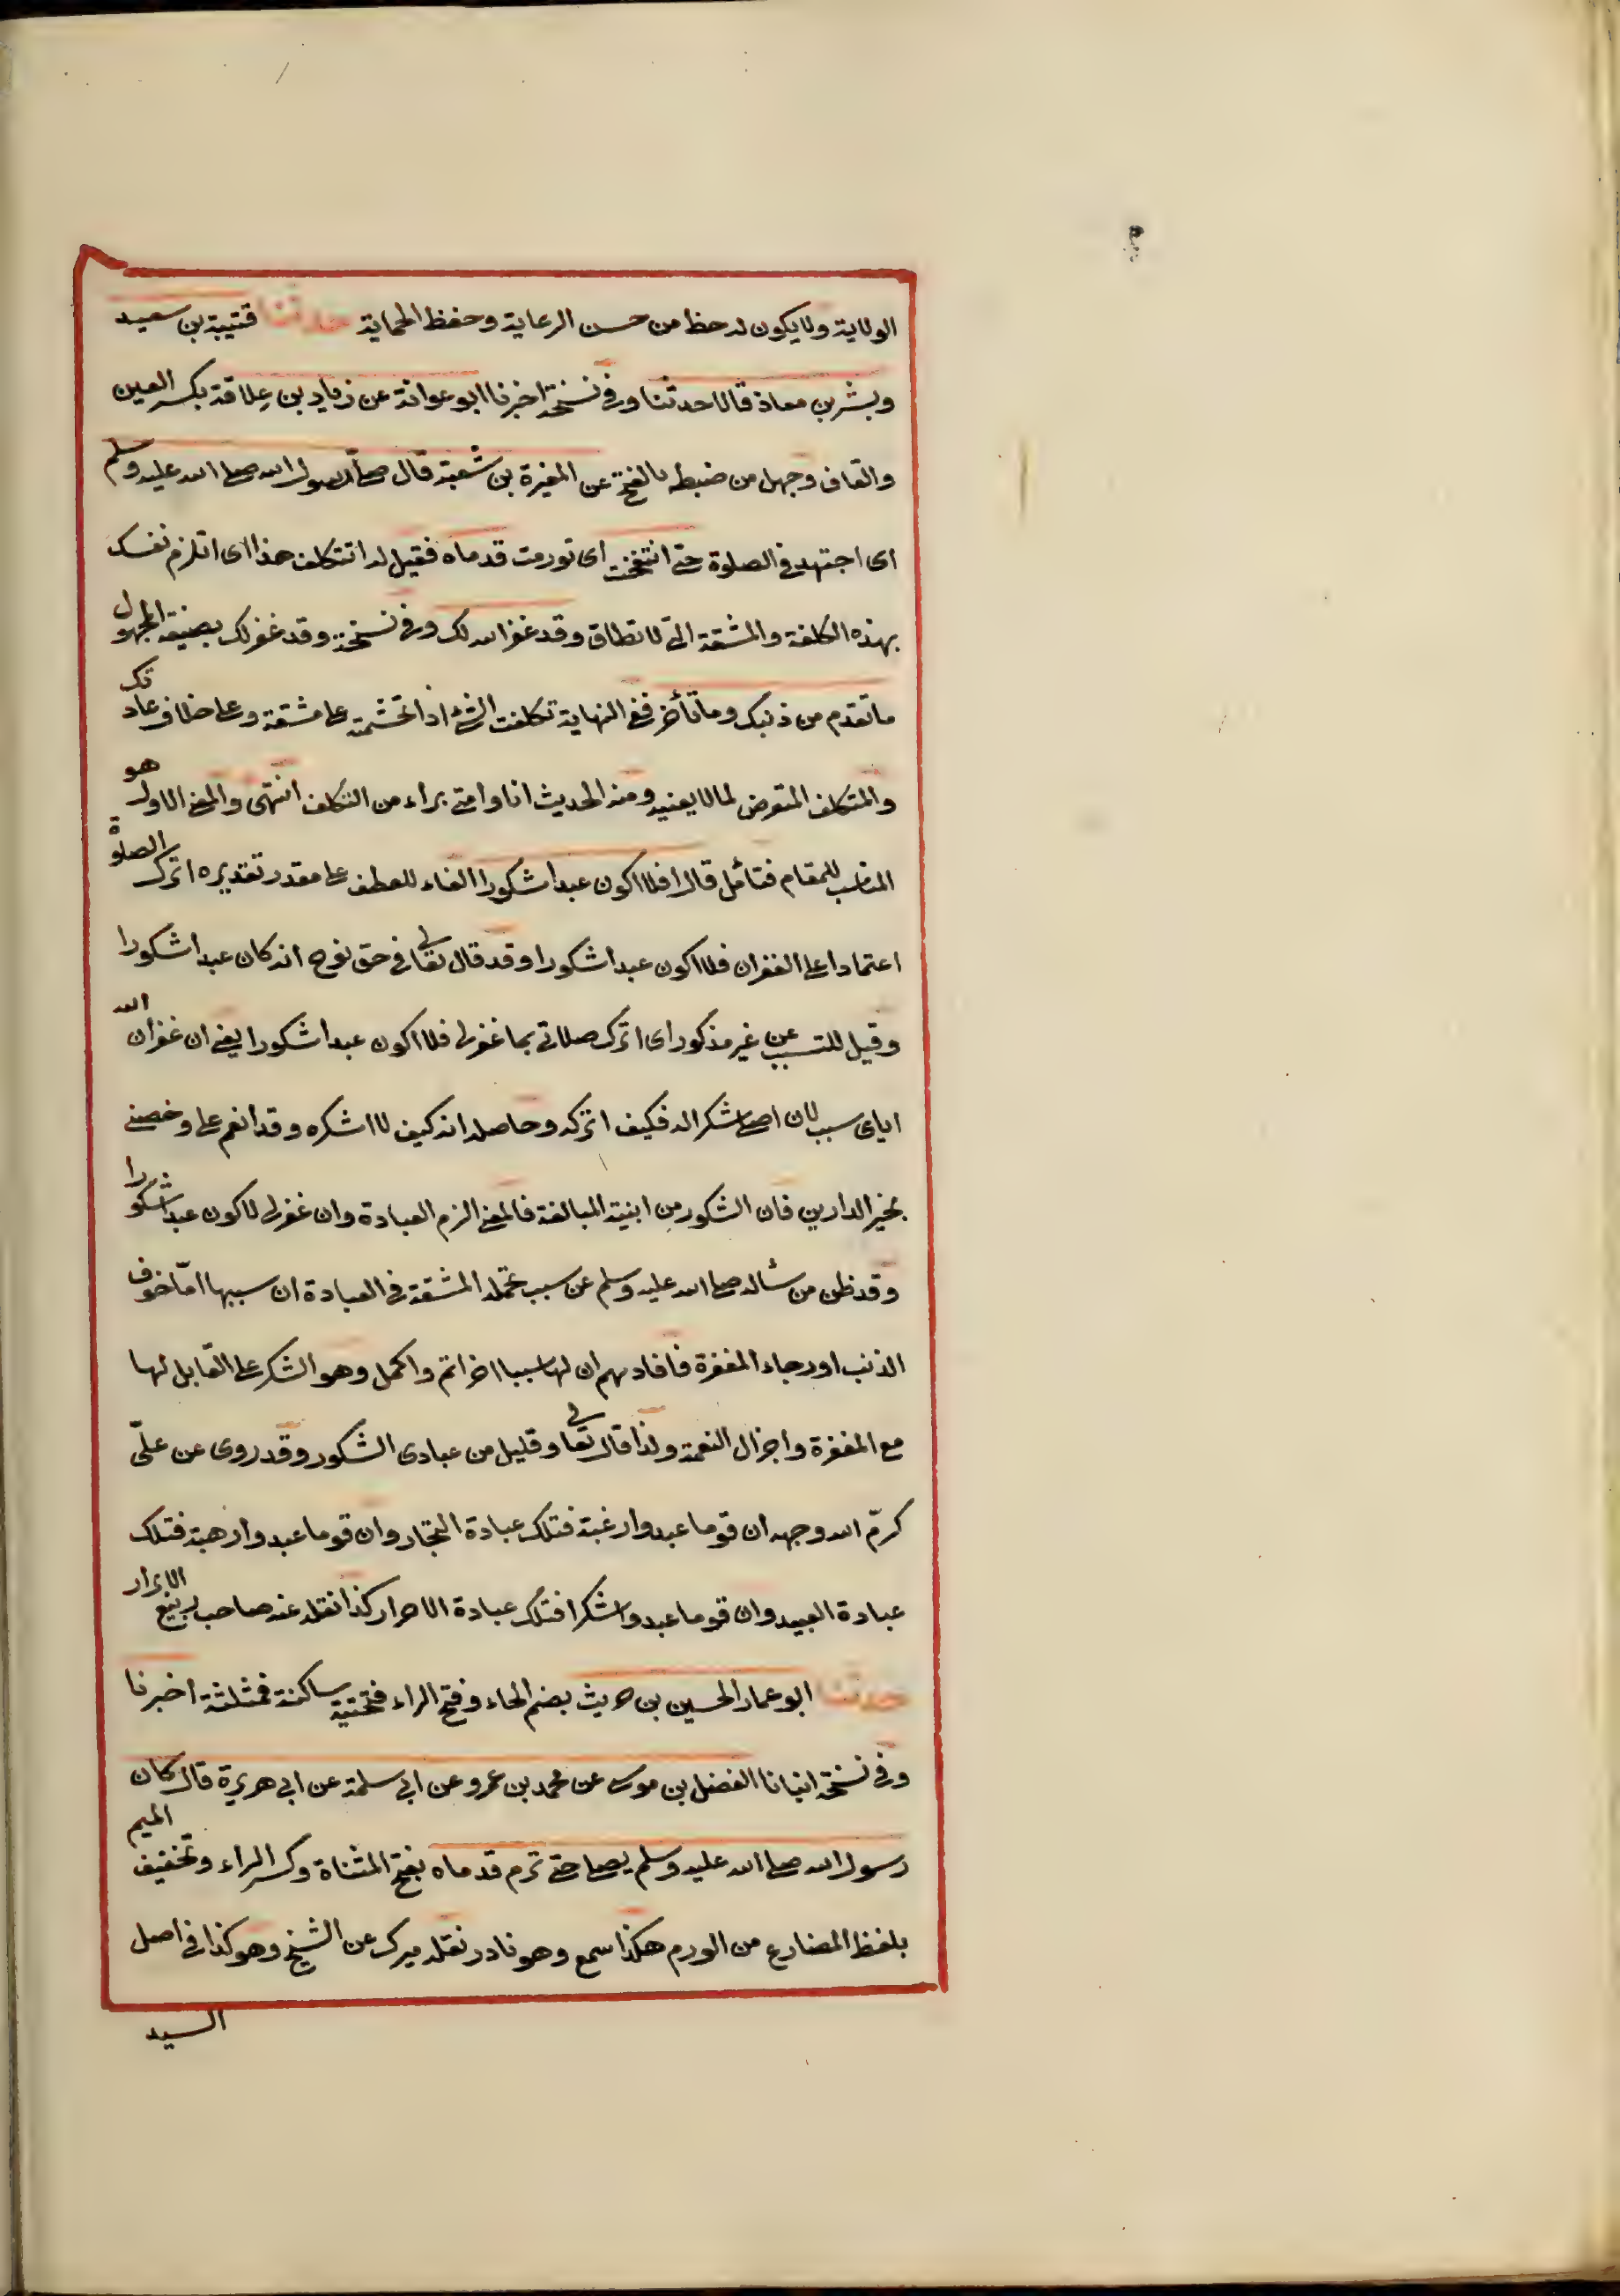 الولاية ولا يكون له حظ من حسن الرعاية وحفظ الحماية حدثنا قتيبة بن سعيد
وبشر بن معاذ قالا حدثنا وفي نسخة اخبرنا ابو عوانة عن زياد بن علاقة بكسر العين
والقاف وجهل من ضبطه بالفتح عن المغيرة بن شعبة قال صلى رسول الله صلى الله عليه وسلم
اى اجتهد فى الصلوة حتى انتفخت اى تورمت قدماه فقيل له اتتكلف هذا اى اتلزم نفسك
بهذه الكلفة والمشقة التى لا تطاق وقد غفر الله لك وفى نسخة وقد غفر لك بصيغة المجهول
ما تقدم من ذنبك وما تأخر ففى النهاية تكلفت الشئ اذا تجشمته على مشقة وعلى خلاف عادتك
والمتكلف المتعرض لما لا يعنيه ومنه الحديث انا وامتى براء من التكلف انتهى والمعنى الاول هو
المناسب للمقام فتأمل قال افلا اكون عبدا شكورا الفاء للعطف على مقدر تقديره اترك الصلوة
اعتمادا على الغفران فلا اكون عبدا شكورا وقد قال تعالى فى حق نوح انه كان عبدا شكورا
وقيل للتسبب عن غير مذكور اى اترك صلاتى بما غفر لى فلا اكون عبدا شكورا يعنى ان غفران الله
اياى سبب لان اصلى شكرا له فكيف اتركه وحاصله انه كيف لا اشكره وقد انعم على وخصنى
بخير الدارين فان الشكور من ابنية المبالغة فالمعنى الزم العبادة وان غفر لى لاكون عبدا شكورا
وقد ظن من سأله صلى الله عليه وسلم عن سبب تحمله المشقة فى العبادة ان سببها امّا خوف
الذنب او رجاء المغفرة فافادهم ان لها سببا اخر اتم واكمل وهو الشكر على القابل لها
مع المغفرة واجزال النعمة ولذا قال تعالى وقليل من عبادى الشكور وقد روى عن علىّ
كرّم الله وجهه ان قوما عبدوا رغبة فتلك عبادة التجار وان قوما عبدوا رهبة فتلك
عبادة العبيد وان قوما عبدوا شكرا فتلك عبادة الاحرار كذا نقله عنه صاحب ربيع الابرار
حدثنا ابو عمار الحسين بن حريث بضم الحاء وفتح الراء فتحتية ساكنة فمثلثة اخبرنا
وفى نسخة انبانا الفضل بن موسى عن محمد بن عمرو عن ابى سلمة عن ابى هريرة قال كان
رسول الله صلى الله عليه وسلم يصلى حتى ترم قدماه بفتح المثناة وكسر الراء وتخفيف الميم
بلفظ المضارع من الورم هكذا سمع وهو نادر نقله ميرك عن الشيخ وهو كذا فى اصل
السيد